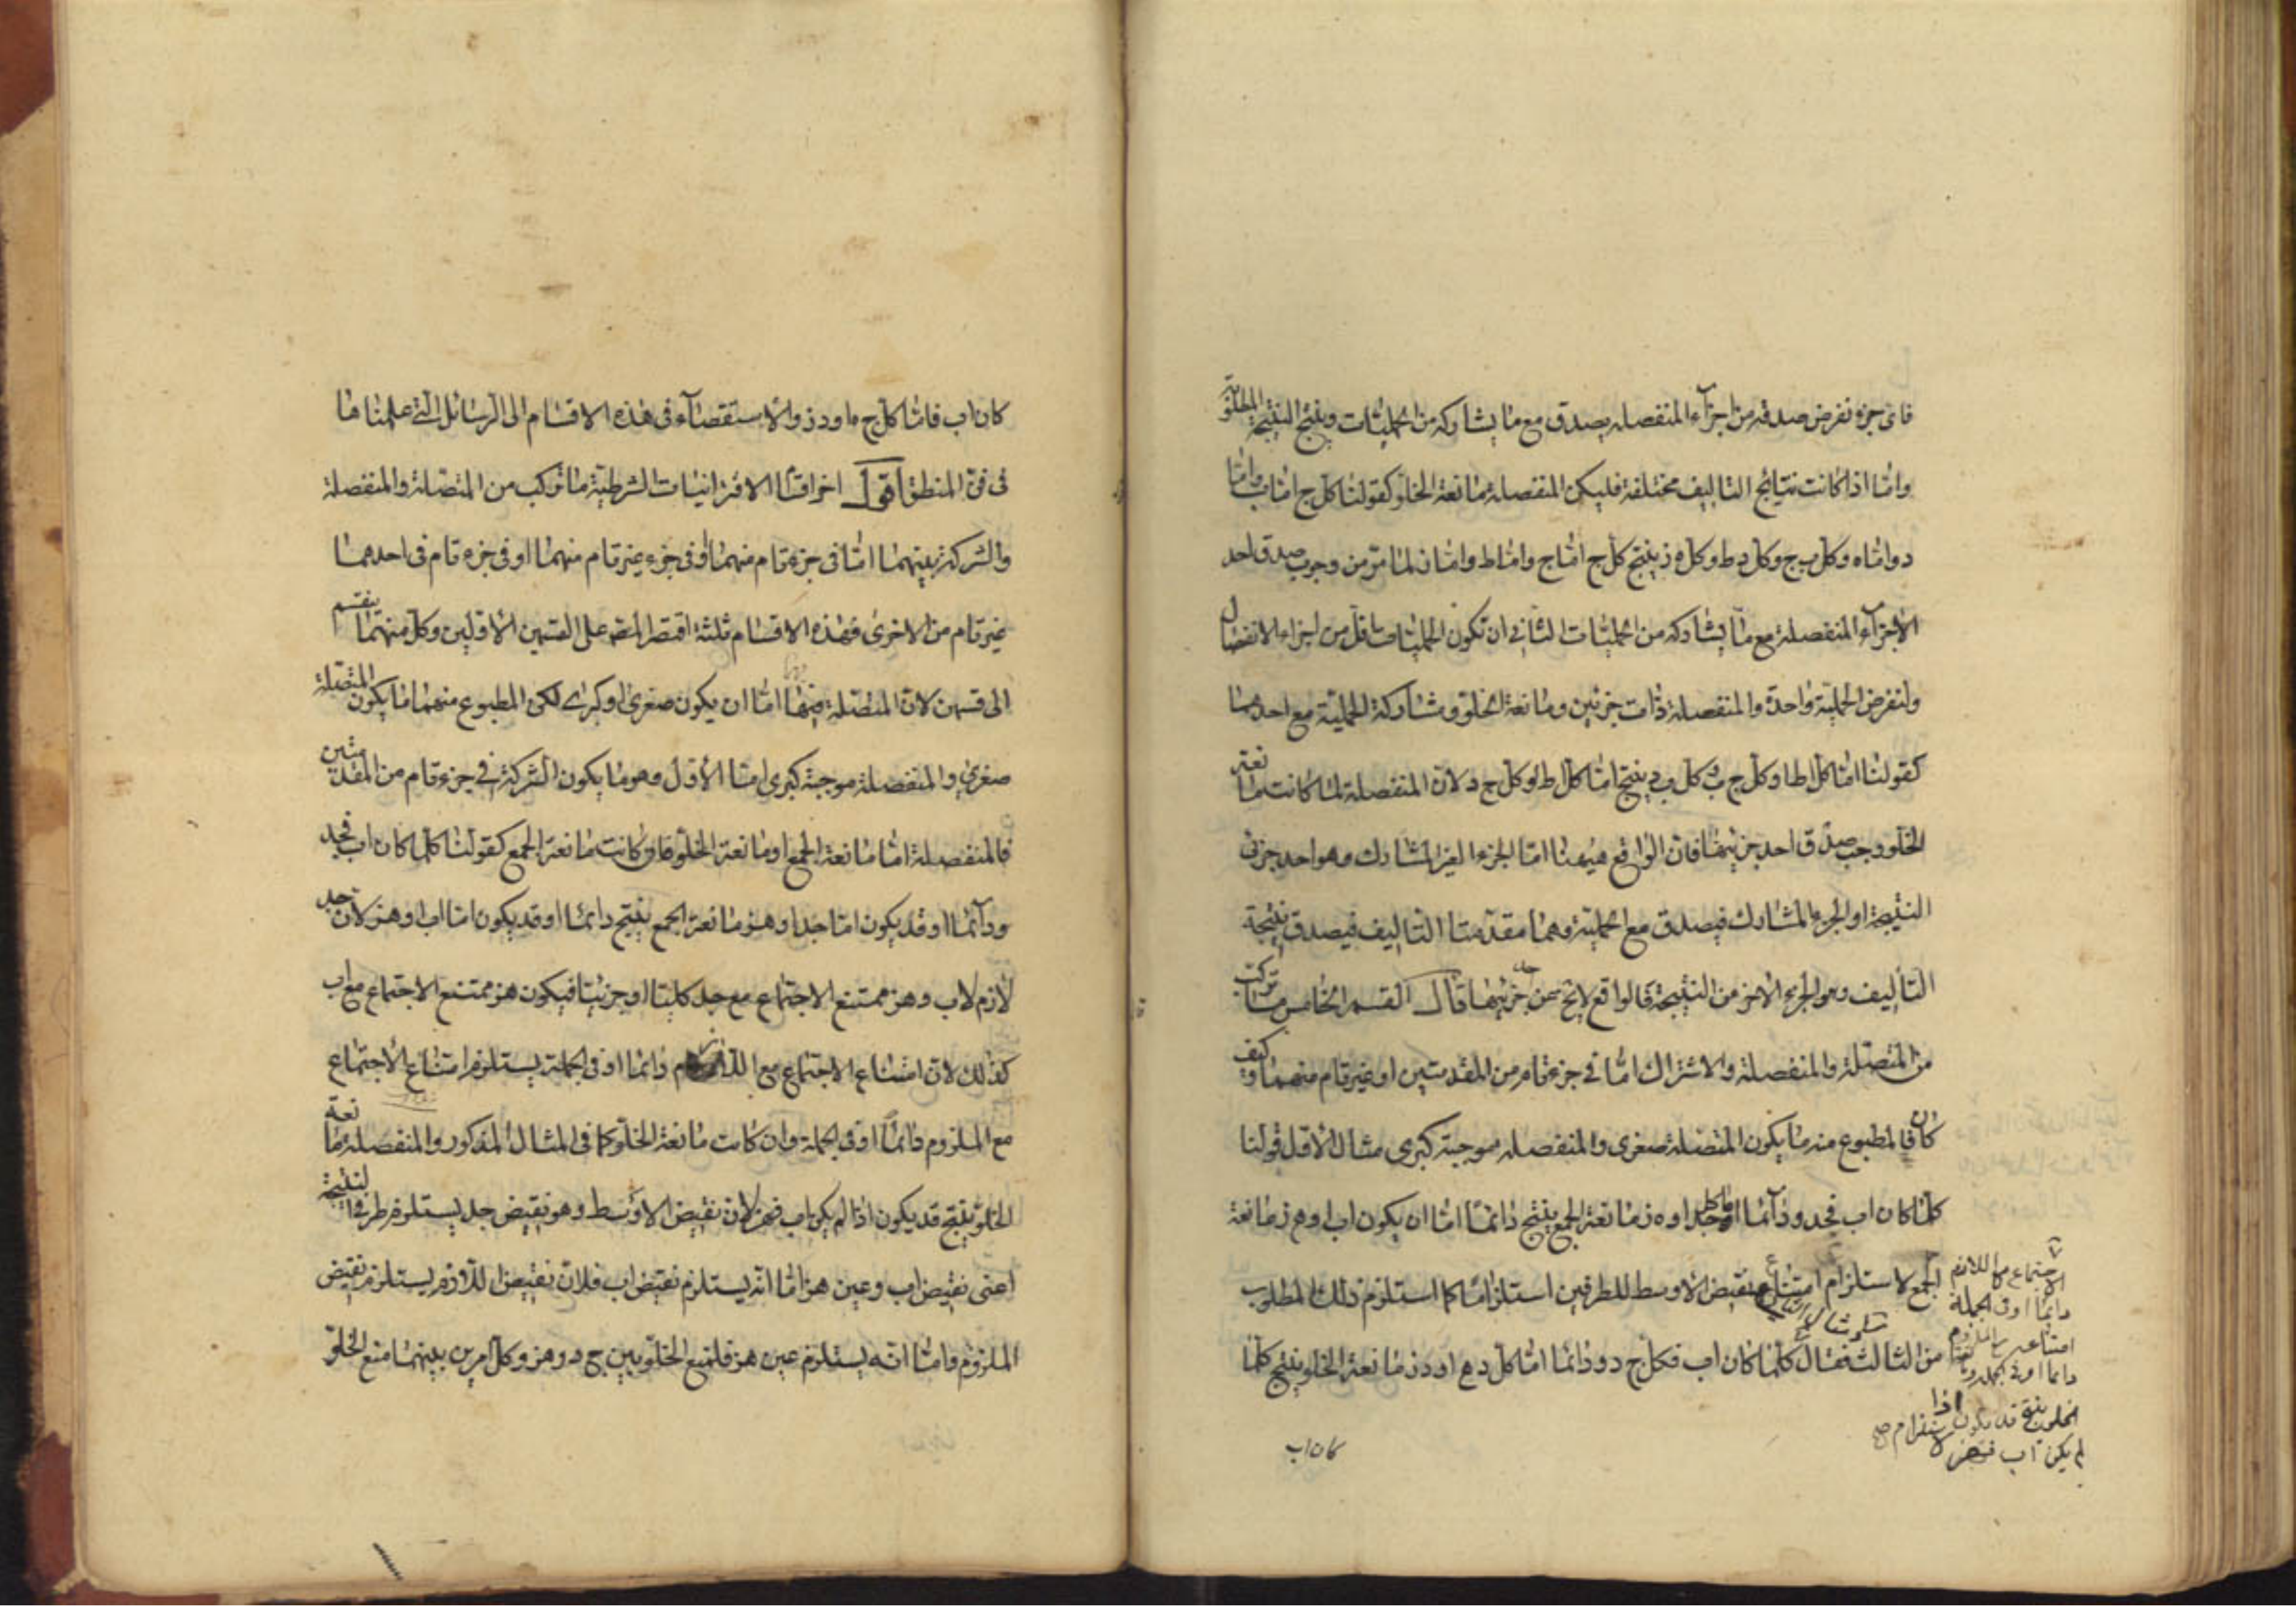 فاى جزء نفرض صدقه من اجزاء المنفصله يصدق مع ما يشاركه من الحمليات وينتج النتيجة المطلوبة
واما اذا كانت نتايج التاليف مختلفة فليكن المنفصلة مانعة الخلو كقولنا كل ج اما ب واما
د واما ه وكل ب ج وكل د ط وكل ه ز ينتج كل ج اما ج واما ط واما ز لما مر من وجوب صدق احد
الاجزاء المنفصلة مع ما يشاركه من الحمليات الثانى ان تكون الحمليات اقل من اجزاء الانفصال
ولنفرض الحملية واحدة والمنفصلة ذات جزئين ومانعة الخلو ومشاركة الحملية مع احدهما
كقولنا اما كل ا ط او كل ج ب وكل ب د ينتج اما كل ا ط او كل ج د لان المنفصلة لما كانت مانعة
الخلو وجب صدق احد جزئيها فان الواقع هيهنا اما الجزء الغير المشارك وهو احد جزئى
النتيجة او الجزء المشارك فيصدق مع الحملية وهما مقدمتا التاليف فيصدق نتيجة
التأليف وهو الجزء الاخر من النتيجة فالواقع لايخ عن جزئيها قال القسم الخامس ما تركب
من المتصلة والمنفصلة والاشتراك اما فى جزء تام من المقدمتين او غير تام منهما وكيف
كان فالمطبوع منه ما يكون المتصلة صغرى والمنفصلة موجبة كبرى مثال الاول قولنا
كلما كان اب فجد ودآئما اما جد اوه ز مانعة الجمع ينتج دائما اما ان يكون اب او ه ز مانعة
الجمع لاستلزام امتناع نقيض الاوسط للطرفين استلزاما كما استلزم ذلك المطلوب
من الثالث فقال كلما كان اب فكل ج د ودائما اما كل د ه او د ز مانعة الخلو ينتج كلما
الاجتماع مع اللازم
دائما او فى الجملة
امتناعه مع الملزوم
دائما او فى الجملة
الخلو ينتج قد يكون اذا
لم يكن اب فهز لاستلزام صح
كان اب
كان اب فاما كل ج ه او د ز والاستقصآء فى هذه الاقسام الى الرسائل التى عملناها
فى فن المنطق اقول اخر اقسام الاقترانيات الشرطية ما تركب من المتصلة والمنفصلة
والشركة بينهما اما فى جزء تام منهما او فى جزء غير تام منهما او فى جزء تام فى احدهما
غير تام من الاخرى فهذه الاقسام ثلثة اقتصر المصـ على القسمين الاولين وكل منهما ينقسم
الى قسمين لان المتصلة فيها اما ان يكون صغرى او كبرى لكن المطبوع منهما ما يكون المتصلة
صغرى والمنفصلة موجبة كبرى اما الاول وهو ما يكون الشركة فى جزء تام من المقدمتين
فالمنفصلة اما مانعة الجمع او مانعة الخلو فان كانت مانعة الجمع كقولنا كلما كان اب فجد
ودآئما او قد يكون اما جد او هز مانعة الجمع ينتج دائما او قد يكون اما اب او هز لان جد
لازم لاب وهز ممتنع الاجتماع مع جد كليا او جزئيا فيكون هز ممتنع الاجتماع مع اب
كذلك لان امتناع الاجتماع مع اللازم دائما او فى الجملة يستلزم امتناع الاجتماع
مع الملزوم دائما او فى الجملة وان كانت مانعة الخلو كما فى المثال المذكور والمنفصلة مانعة
الخلو ينتج قد يكون اذا لم يكن اب فهز لان نقيض الاوسط وهو نقيض جد يستلزم طرفى النتيجة
اعنى نقيض اب وعين هز اما انه يستلزم نقيض اب فلان نقيض اللازم يستلزم نقيض
الملزوم واما انه يستلزم عين هز فلمنع الخلو بين ج د وهز وكل امرين بينهما منع الخلو